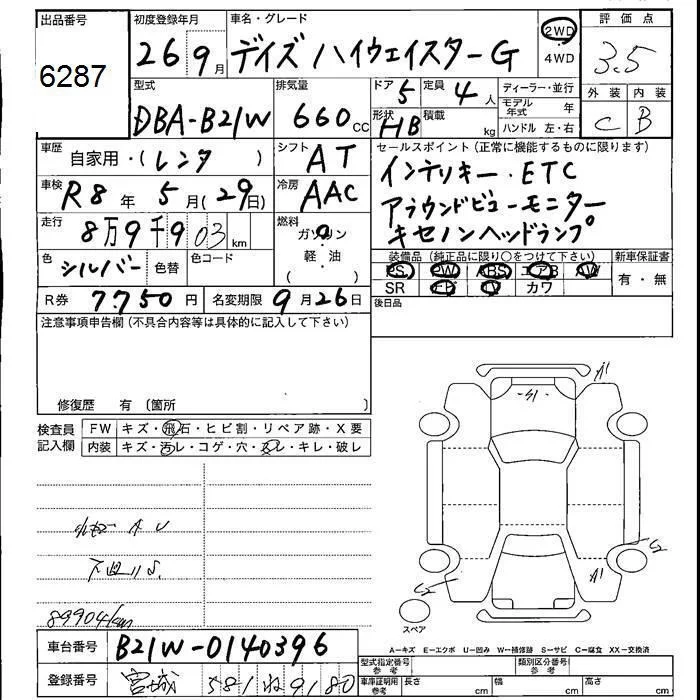 出品番号
6287
初度登録年月
26 9月
車名・グレード
デイズ ハイウェイスターG
2WD
4WD
評価点
3.5
外装 内装
C B
型式
DBA-B21W
排気量
660cc
ドア 5
定員 4人
形状 HB
積載 kg
ディーラー・並行
モデル年式 年
ハンドル 左・右
車歴
自家用・(レンタ )
シフト AT
セールスポイント(正常に機能するものに限ります)
インテリキー・ETC
アラウンドビューモニター
キセノンヘッドランプ
車検
R8年5月(29日)
冷房 AAC
走行
8万9千903km
燃料
ガソリン
軽・油
( )
色 シルバー
色替
色コード
装備品(純正品に限り○をつけて下さい)
PS PW ABS エアB AW
SR ナビ TV カワ
新車保証書
有・無
R券 7750円
名変期限 9月26日
後日品
注意事項申告欄(不具合内容等は具体的に記入して下さい)
修復歴 有(箇所 )
検査員記入欄
FW キズ・飛石・ヒビ割・リペア跡・X要
内装 キズ・汚レ・コゲ・穴・スレ・キレ・破レ
A U
下廻りS.
89904km
S1
A1
A1
スペア
A-キズ E-エクボ U-凹み W-補修跡 S-サビ C-腐食 XX-交換済
車台番号 B21W-0140396
登録番号 宮城 581 ね 9180
型式指定番号 参考
類別区分番号 参考
車庫証明用 参考
長さ cm
幅 cm
高さ cm